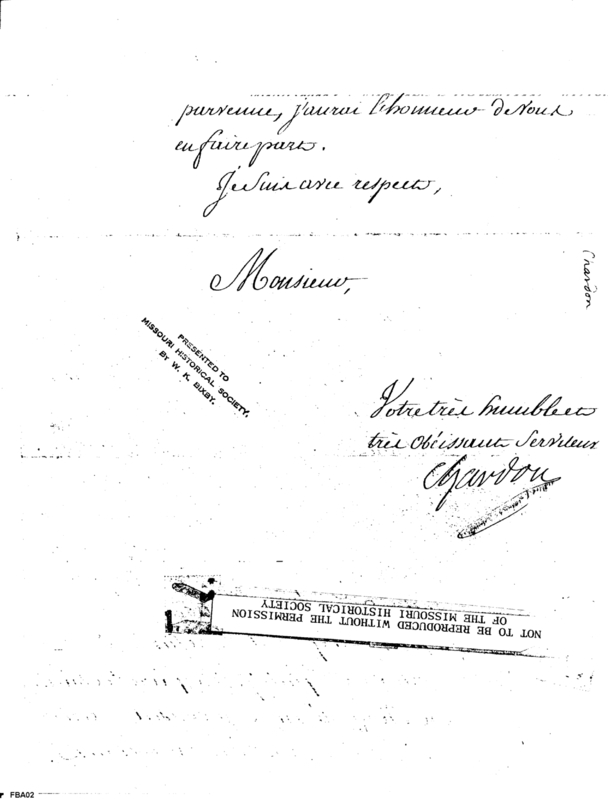 parvenue, j'aurai l'honneur de Vous
en faire part.
Je Suis avec respect,
Monsieur,
Chardon
PRESENTED TO
MISSOURI HISTORICAL SOCIETY,
BY W. K. BIXBY.
Votre très humble et
très obéissant Serviteur
Chardon
NOT TO BE REPRODUCED WITHOUT THE PERMISSION
OF THE MISSOURI HISTORICAL SOCIETY
FBA02